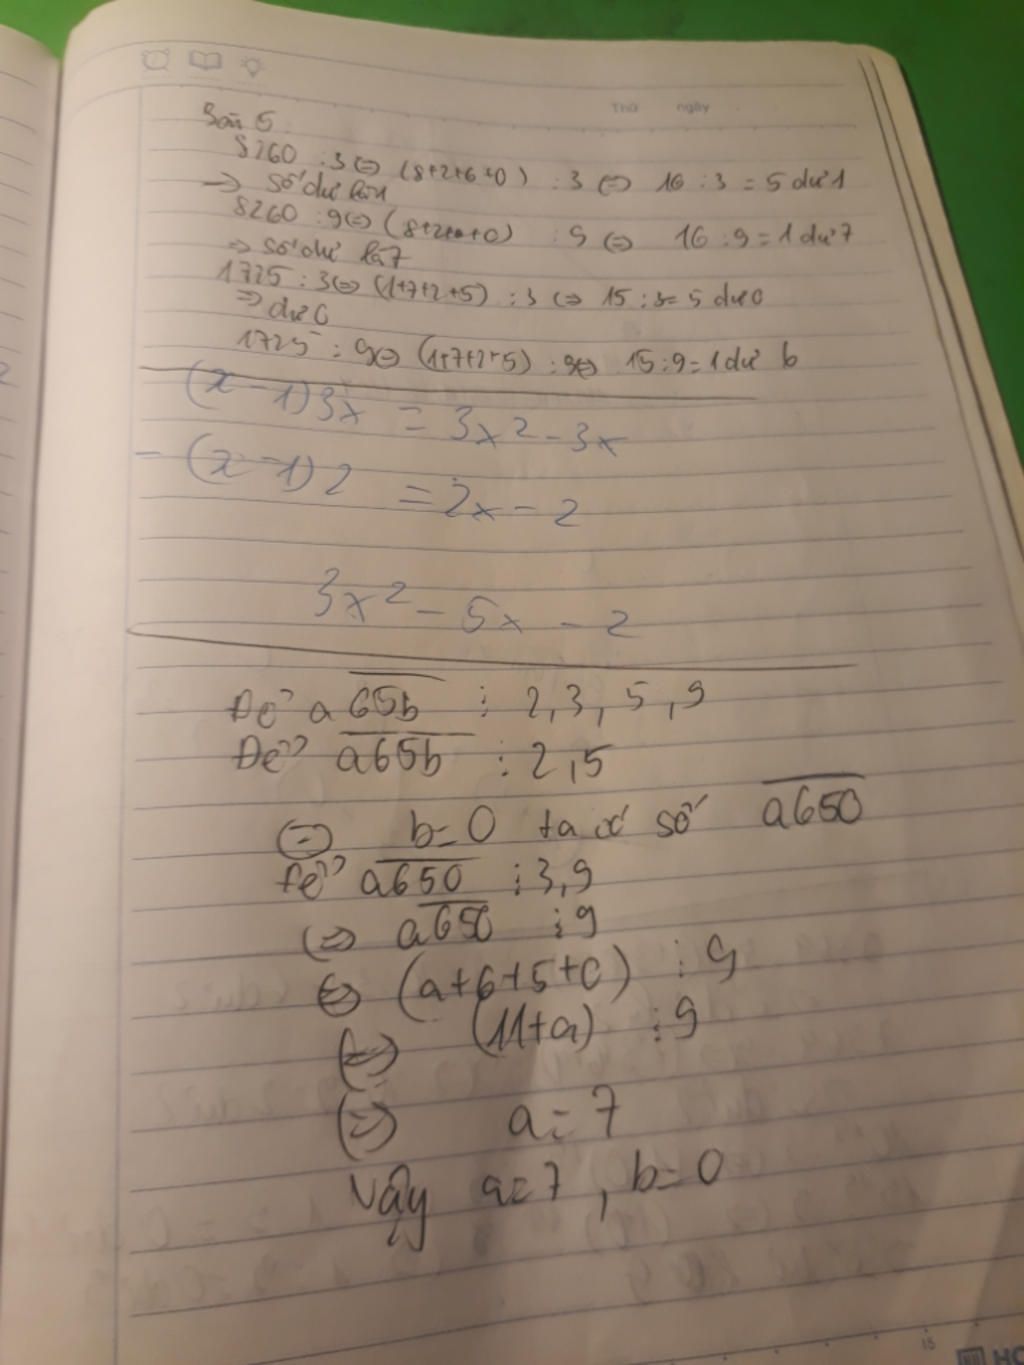 Thứ ngày
Bài 5
8260 : 3 ⇔ (8+2+6+0) : 3 ⇔ 16 : 3 = 5 dư 1
⇒ số dư là 1
8260 : 9 ⇔ (8+2+6+0) : 9 ⇔ 16 : 9 = 1 dư 7
⇒ số dư là 7
1725 : 3 ⇔ (1+7+2+5) : 3 ⇔ 15 : 3 = 5 dư 0
⇒ dư 0
1725 : 9 ⇔ (1+7+2+5) : 9 ⇔ 15 : 9 = 1 dư 6
(x - 1) 3x = 3x² - 3x
- (x - 1) 2 = 2x - 2
3x² - 5x - 2
Để a65b ⋮ 2, 3, 5, 9
Để a65b ⋮ 2, 5
⇔ b = 0 ta có số a650
Để a650 ⋮ 3, 9
⇔ a650 ⋮ 9
⇔ (a+6+5+0) ⋮ 9
⇔ (11+a) ⋮ 9
⇔ a = 7
Vậy a = 7, b = 0
15